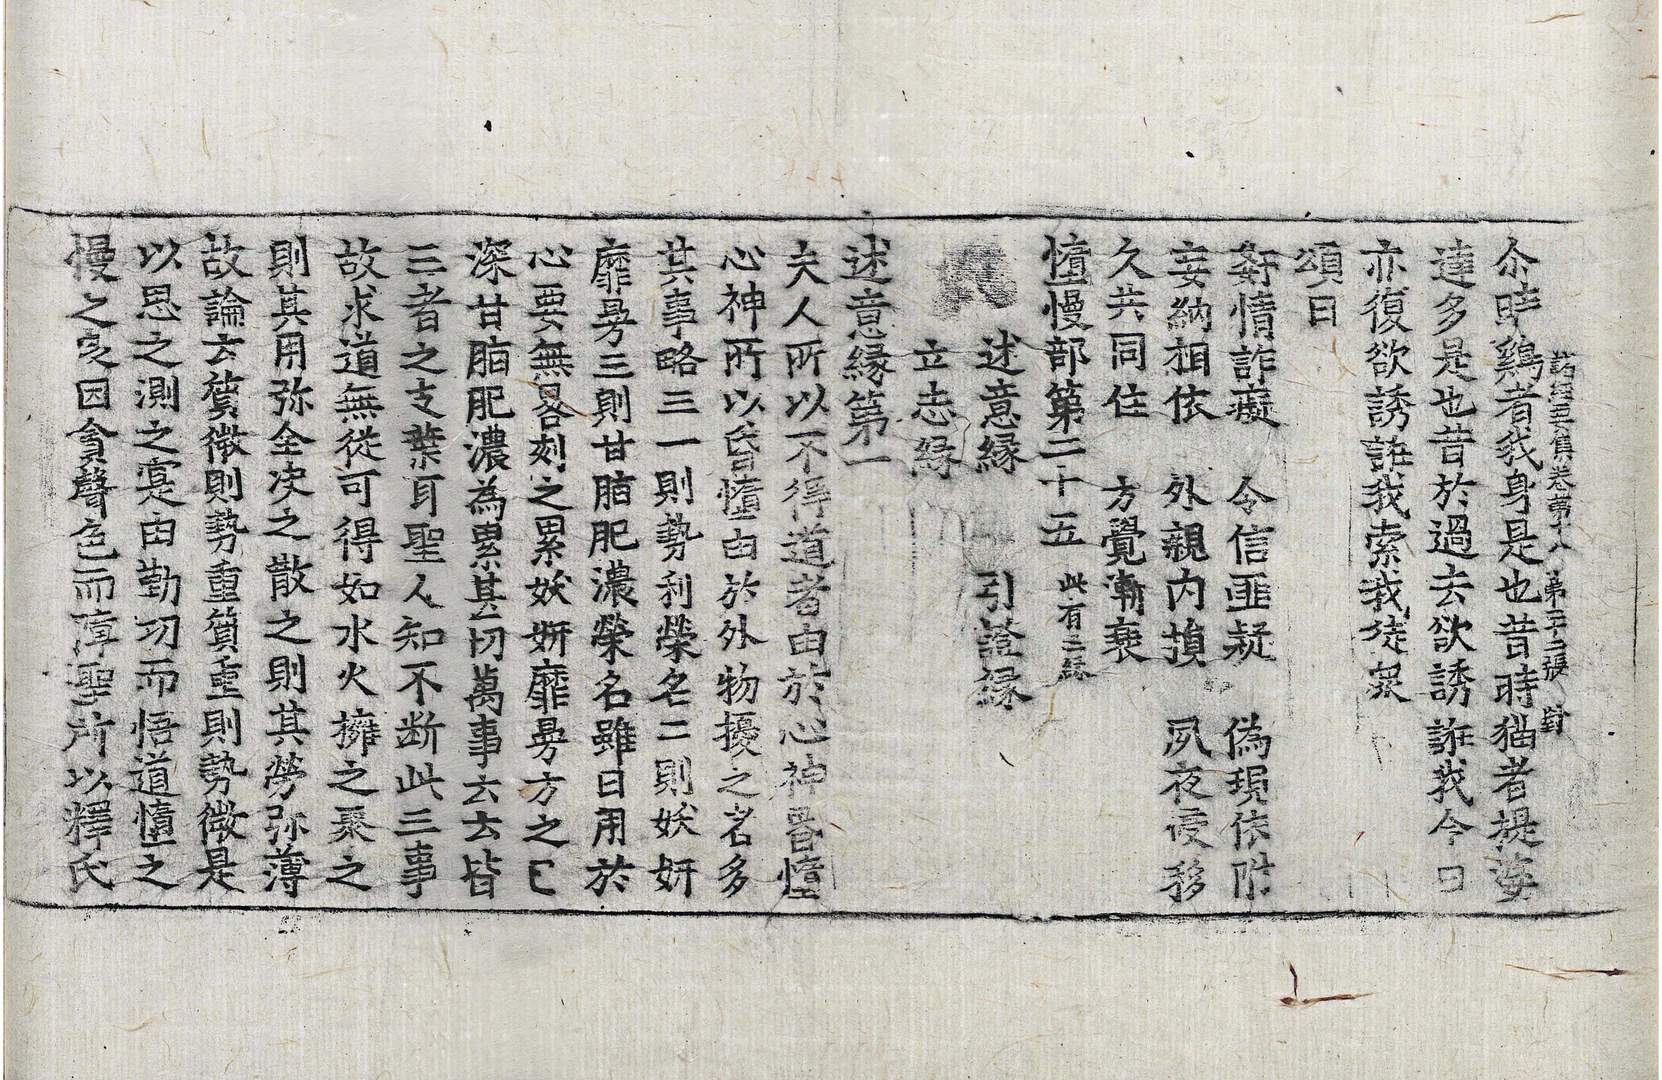 諸経要集卷第十八 第三十二張 對
尒時鷄者我身是也昔時猫者提婆
達多是也昔於過去欲誘誑我今日
亦復欲誘誑我索我徒衆
頌曰
姧情詐癡 令信匪疑 偽現依附
妄納相依 外親内損 夙夜侵移
久共同住 方覺漸衰
憧慢部第二十五 此有三縁
述意縁 引證縁
立志縁
述意縁第一
夫人所以不得道者由於心神昏憧
心神所以昏憧由於外物擾之名多
其事略三一則勢利榮名二則妖妍
靡曼三則甘脂肥濃榮名雖日用於
心要無晷刻之累妖妍靡曼方之已
深甘脂肥濃為累甚切萬事云云皆
三者之支葉耳聖人知不断此三事
故求道無從可得如水火擁之聚之
則其用弥全决之散之則其勞弥薄
故論云質微則勢重質重則勢微是
以思之測之寔由勤功而悟道憧之
慢之良因貪聲色而障聖所以釋氏